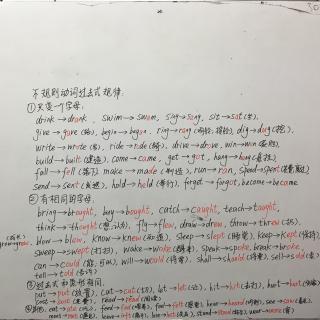 30
不规则动词过去式规律.
①只变一个字母:
drink→drank, swim→swam, sing→sang, sit→sat(坐),
give→gave(给), begin→began, ring→rang(), dig→dug(挖),
write→wrote(写), ride→rode(骑), drive→drove, win→won(),
build→built(建造), come→came, get→got, hang→hung(悬挂)
fall→fell(落下) make→made(制造), run→ran, spend→spent()
send→sent(发送), hold→held(举行), forget→forgot, become→became
②有相同的字母.
bring→brought, buy→bought, catch→caught, teach→taught,
think→thought(想,认为), fly→flew, draw→drew, throw→threw(扔).
grow→grew, blow→blew, know→knew(知道), sleep→slept(睡觉) keep→kept(保持)
sweep→swept(打扫), wake→woke(醒来) speak→spoke, break→broke,
can→could(能,可以) will→would(将要), shall→should(将要), sell→sold(卖)
tell→told(告诉)
③过去式和原形相同.
put→put(放置) cut→cut(切) let→let(让) hit→hit(击打), hurt→hurt()
read→read(阅读)
eat→ate(吃), feed→fed() feel→felt() hear→heard(听到) see→saw(看见)
meet→met(遇见) stand→stood